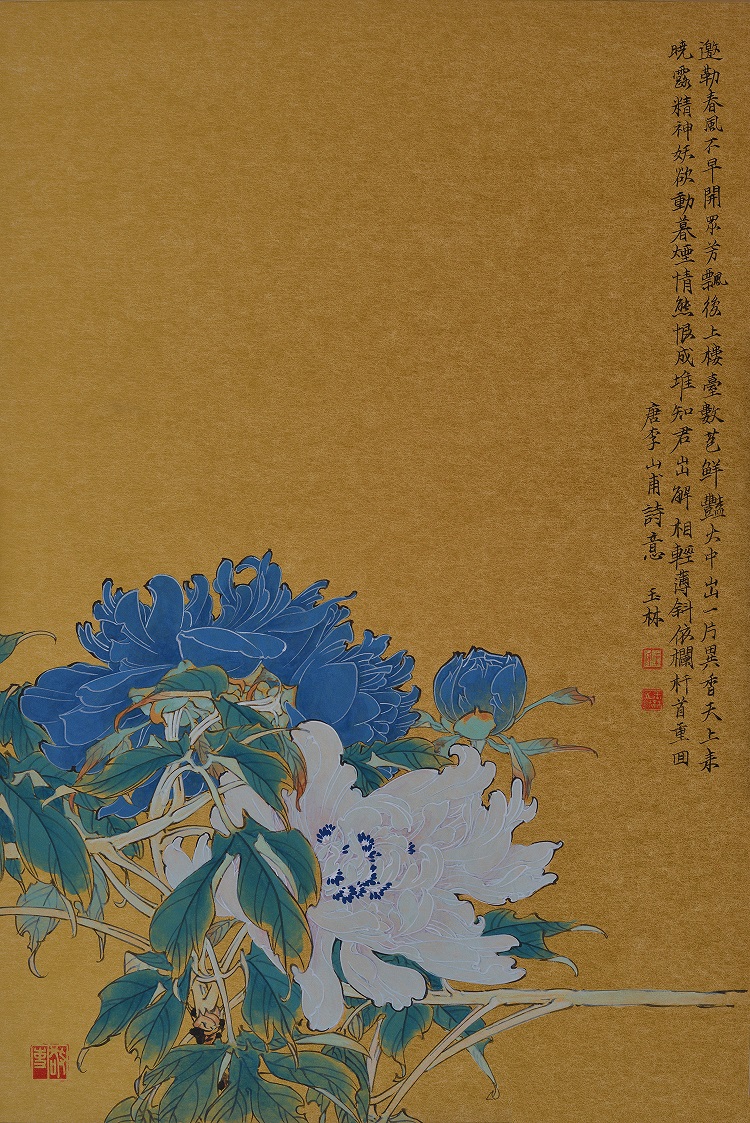 邀勒春風不早開眾芳飄後上樓臺數苞鮮豔火中出一片異香天上来
曉露精神妖欲動暮煙情態恨成堆知君出解相輕薄斜依欄杆首重回
唐李山甫詩意 玉林